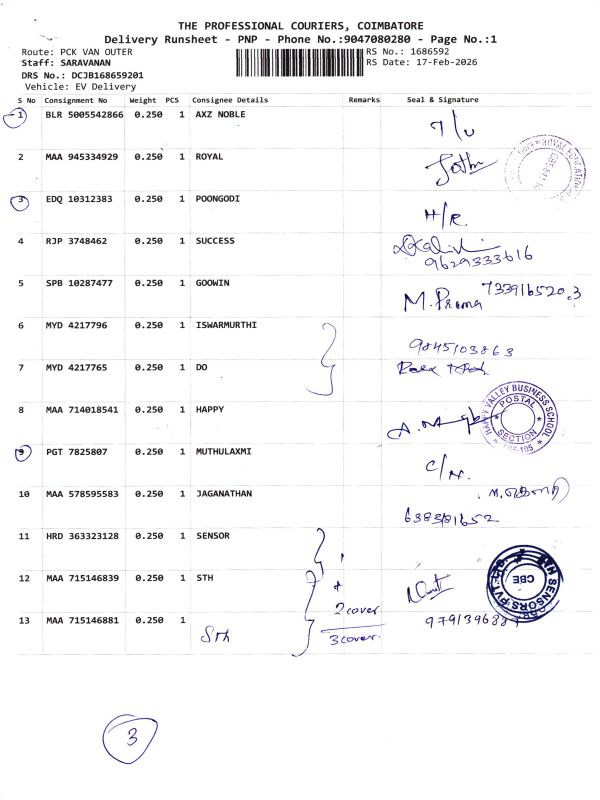 THE PROFESSIONAL COURIERS, COIMBATORE
Delivery Runsheet - PNP - Phone No.:9047080280 - Page No.:1
Route: PCK VAN OUTER RS No.: 1686592
Staff: SARAVANAN RS Date: 17-Feb-2026
DRS No.: DCJB168659201
Vehicle: EV Delivery
S No Consignment No Weight PCS Consignee Details Remarks Seal & Signature
1 BLR 5005542866 0.250 1 AXZ NOBLE
2 MAA 945334929 0.250 1 ROYAL
3 EDQ 10312383 0.250 1 POONGODI H/R
4 RJP 3748462 0.250 1 SUCCESS
9629333616
5 SPB 10287477 0.250 1 GOOWIN 7339165203
M. Prema
6 MYD 4217796 0.250 1 ISWARMURTHI 9845103863
7 MYD 4217765 0.250 1 DO
8 MAA 714018541 0.250 1 HAPPY
HAPPY VALLEY BUSINESS SCHOOL
POSTAL SECTION
9 PGT 7825807 0.250 1 MUTHULAXMI C/N.
10 MAA 578595583 0.250 1 JAGANATHAN
11 HRD 363323128 0.250 1 SENSOR
12 MAA 715146839 0.250 1 STH
CBE
2 cover
13 MAA 715146881 0.250 1 Sth 3 cover.
3